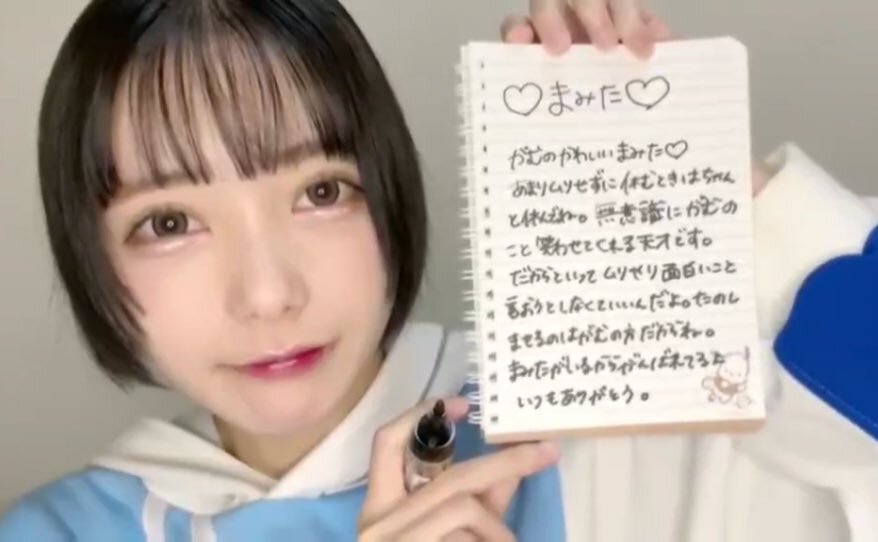 ♡まみた♡
がむのかわいいまみた♡
あまりムリせずに休むときはちゃん
と休んでね。無意識にがむの
こと笑わせてくれる天才です。
だからといってムリやり面白いこと
言おうとしなくていいんだよ。たのし
ませるのはがむの方だからね。
まみたがいるからがんばれてるよ
いつもありがとう。